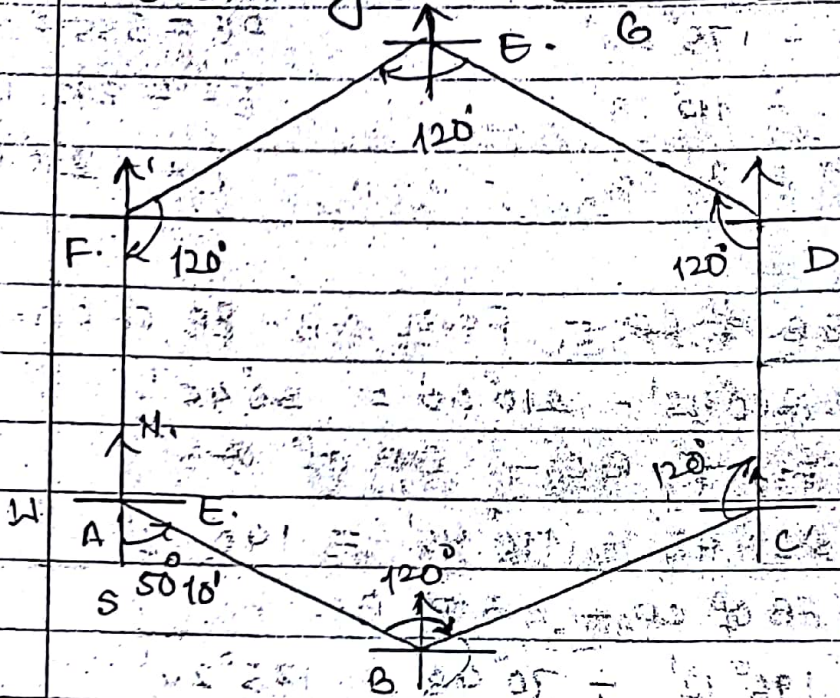 E. 6
120°
F. 120° 120° D
N.
120°
W A E. C
S 50° 10' 120°
B